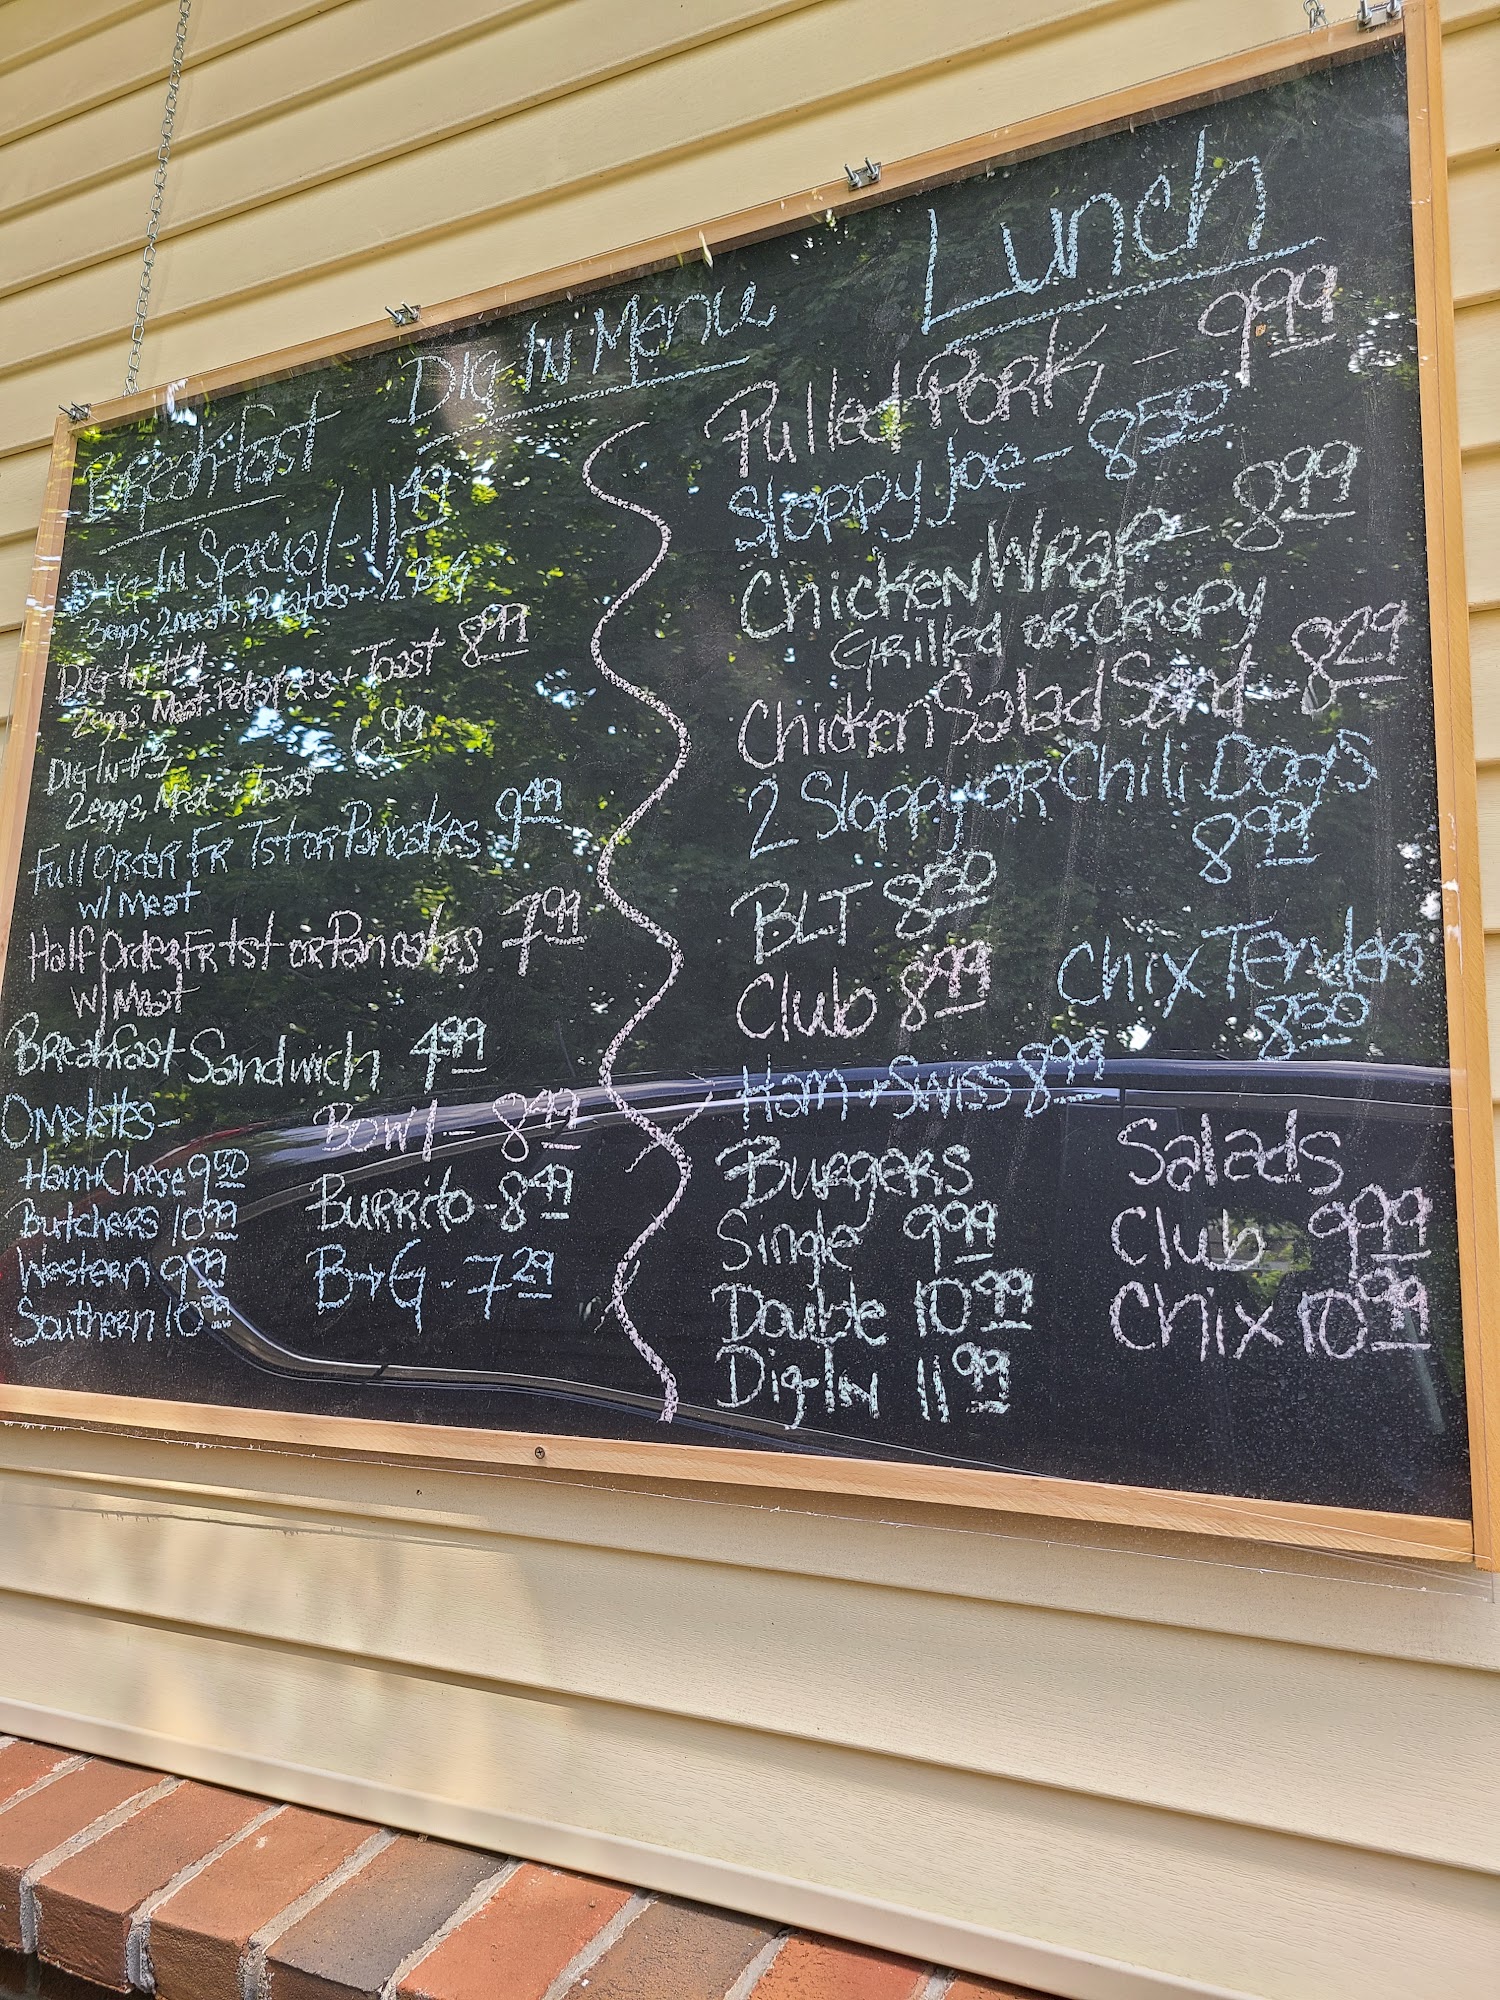 Dig In Menu
Breakfast
Dig-In Special - 11.49
3 eggs, 2 meats, Potatoes + 1/2 B+G
Dig-In #1
2 eggs, Meat, Potatoes + Toast 8.99
Dig In #2 6.99
2 eggs, Meat + Toast
Full Order Fr Tst or Pancakes 9.49
w/ Meat
Half Order Fr tst or Pancakes 7.99
w/ Meat
Breakfast Sandwich 4.99
Omeletts-
Ham+Cheese 9.50
Butchers 10.99
Western 9.99
Southern 10.99
Bowl - 8.49
Burrito - 8.49
B+G - 7.29
Lunch
Pulled Pork - 9.99
Sloppy Joe - 8.50
Chicken Wrap - 8.99
Grilled or Crispy
Chicken Salad Sand - 8.29
2 Sloppy or Chili Dogs
8.99
BLT 8.50
Club 8.99
Chix Tenders
8.50
Ham + Swiss 8.99
Burgers
Single 9.99
Double 10.99
Dig-In 11.99
Salads
Club 9.99
Chix 10.99